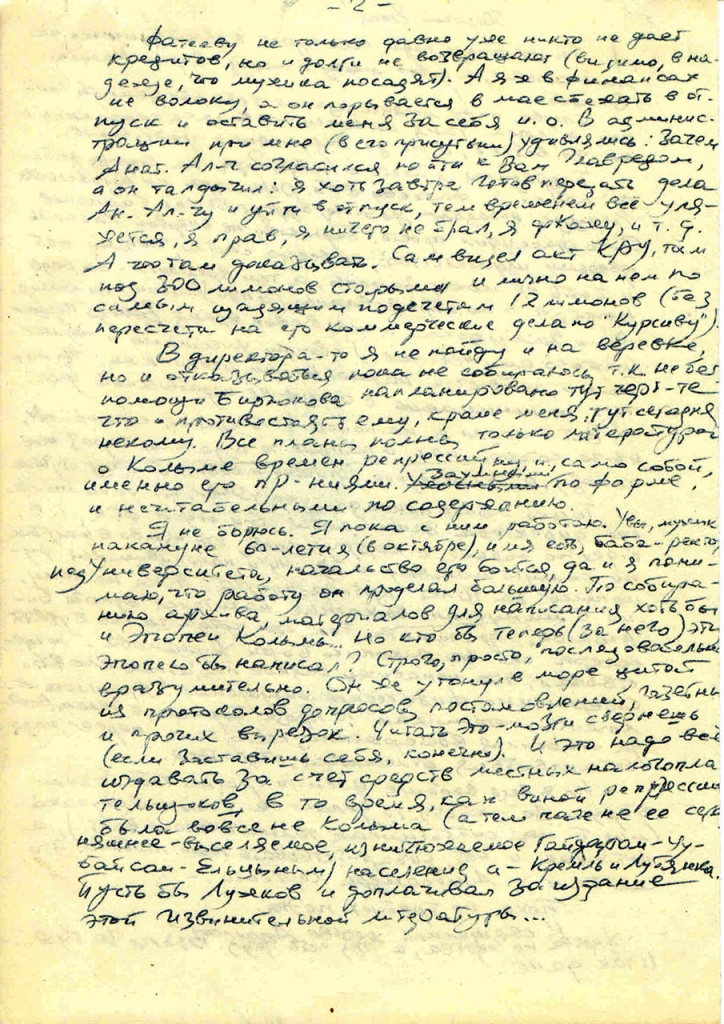 - 2 -
Фатееву не только давно уже никто не дает
кредитов, но и долги не возвращают (видимо, в на-
дежде, что мужика посадят). А я ж в финансах
не волоку, а он порывается в мае съехать в от-
пуск и оставить меня за себя и.о. В админис-
трации при мне (в его присутствии) удивлялись: Зачем
Анат. Ал-ч согласился пойти к Вам Главредом,
а он талдычил: я хоть завтра готов передать дела
Ан. Ал-чу и уйти в отпуск, тем временем всё уля-
жется, я прав, я ничего не брал, я докажу, и т.д.
А что там доказывать. Сам видел акт КРУ, там
под 300 лимонов старыми и лично на нем по
самым щадящим подсчетам 12 лимонов (без
пересчета на его коммерческие дела по "Курсиву").
В директора-то я не пойду и на веревке,
но и отказываться пока не собираюсь, т.к. не без
помощи Бирюкова напланировано тут черт-те
что и противостоять ему, кроме меня, тут сегодня
некому. Все планы полны только литературой
о Колыме времен репрессий, и, само собой,
именно его пр-ниями. Заумными по форме,
и нечитабельными по содержанию.
Я не борюсь. Я пока с ним работаю. Увы, мужик
накануне 60-летия (в октябре), имя есть, баба - ректор
пед Университета, начальство его боится, да и я пони-
маю, что работу он проделал большую. По собира-
нию архива, материалов для написания хоть бы
и Эпопеи Колымы... Но кто бы теперь (за него) эту
эпопею бы написал? Строго, просто, последовательно
вразумительно. Он же утонул в море цитат
из протоколов допросов, постановлений, газетных
и прочих вырезок. Читать это - мозги свернешь
(если заставишь себя, конечно). И это надо всё
издавать за счет средств местных налогопла-
тельщиков, в то время, как виной репрессий
была вовсе не Колыма (а тем паче не ее сегод
няшнее - выселяемое, изничтожаемое Гайдаром-Чу-
байсом-Ельцыным) население, а - Кремль и Лубянка.
Пусть бы Лужков и доплачивал за издание
этой извинительной литературы...